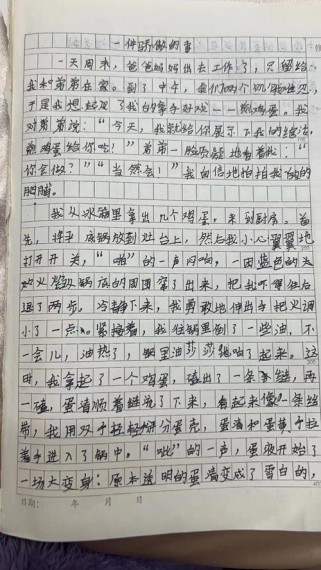 一件骄傲的事
一天周末，爸爸妈妈出去工作了，只留给
我和弟弟在家。到了中午，我们两个饥肠
于是我想起足了我的拿手好戏——煎鸡蛋。我
对弟弟说：“今天，我就给你展示下我的绝活，
煎鸡蛋给你吃！”弟弟一脸质疑地看着我：“
你会做？”“当然会！”我自信地拍拍我的
胸脯。
我从冰箱里拿出几个鸡蛋，来到厨房。首
先，将平底锅放到灶台上，然后我小心翼翼地
打开开关，“啪”的一声闷响，一团蓝色的
火从锅底的周围窜了出来，把我吓得往后
退了两步。冷静下来，我勇敢地伸出手把火调
小了一点。紧接着，我往锅里倒了一些油，不
一会儿，油热了，锅里油莎莎跳响了起来。这
时，我拿起了一个鸡蛋，磕出了一条裂缝，再
一磕，蛋清顺着缝流了下来，看起来像一条丝
带，我用双手轻轻掰分蛋壳，蛋清和蛋黄手拉
着手进入了锅中。“呲”的一声，蛋液开始了
一场大变身：原本透明的蛋清变成了雪白的，
日期： 年 月 日